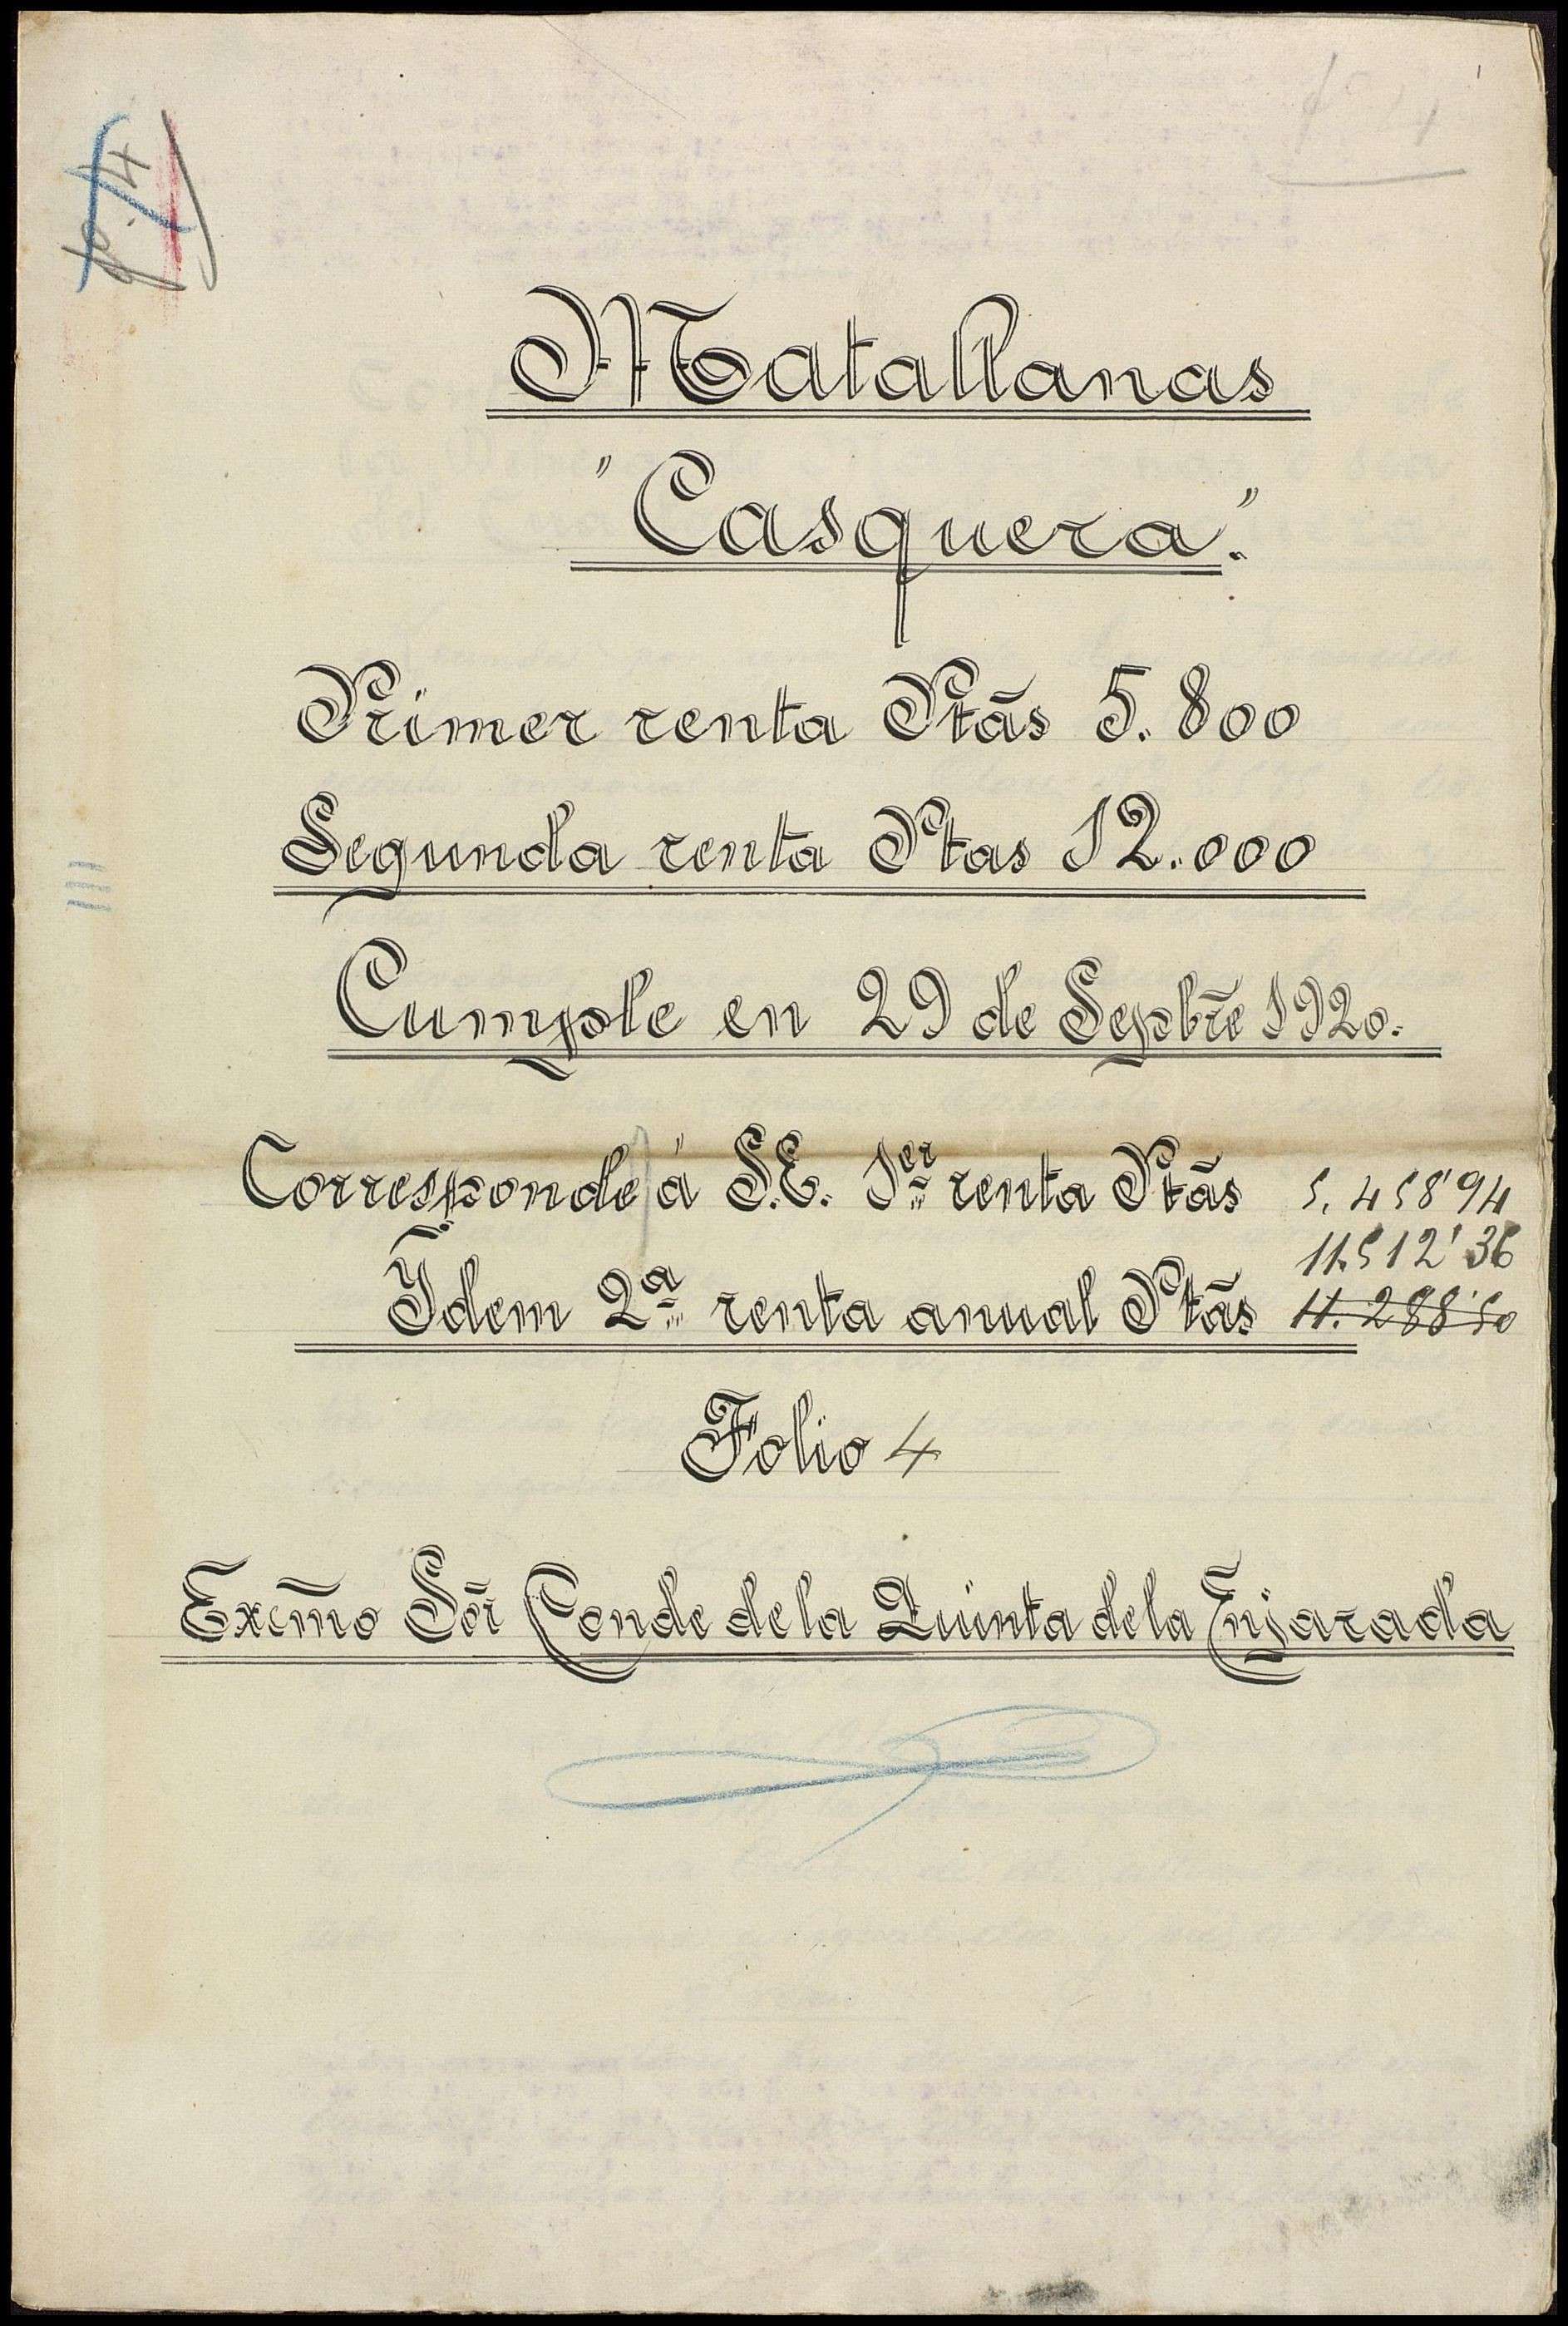 fo. 4
Matallanas
"Casquera".
Primer renta Ptãs 5.800
Segunda renta Ptas 12.000
Cumple en 29 de Sepbrẽ 1920.
Corresponde á S.E. 1er renta Ptãs 5.458'94
11.512'36
Ydem 2a renta anual Ptãs 11.288'50
Folio 4
Excm̃o Sõr Conde de la Quinta de la Enjarada